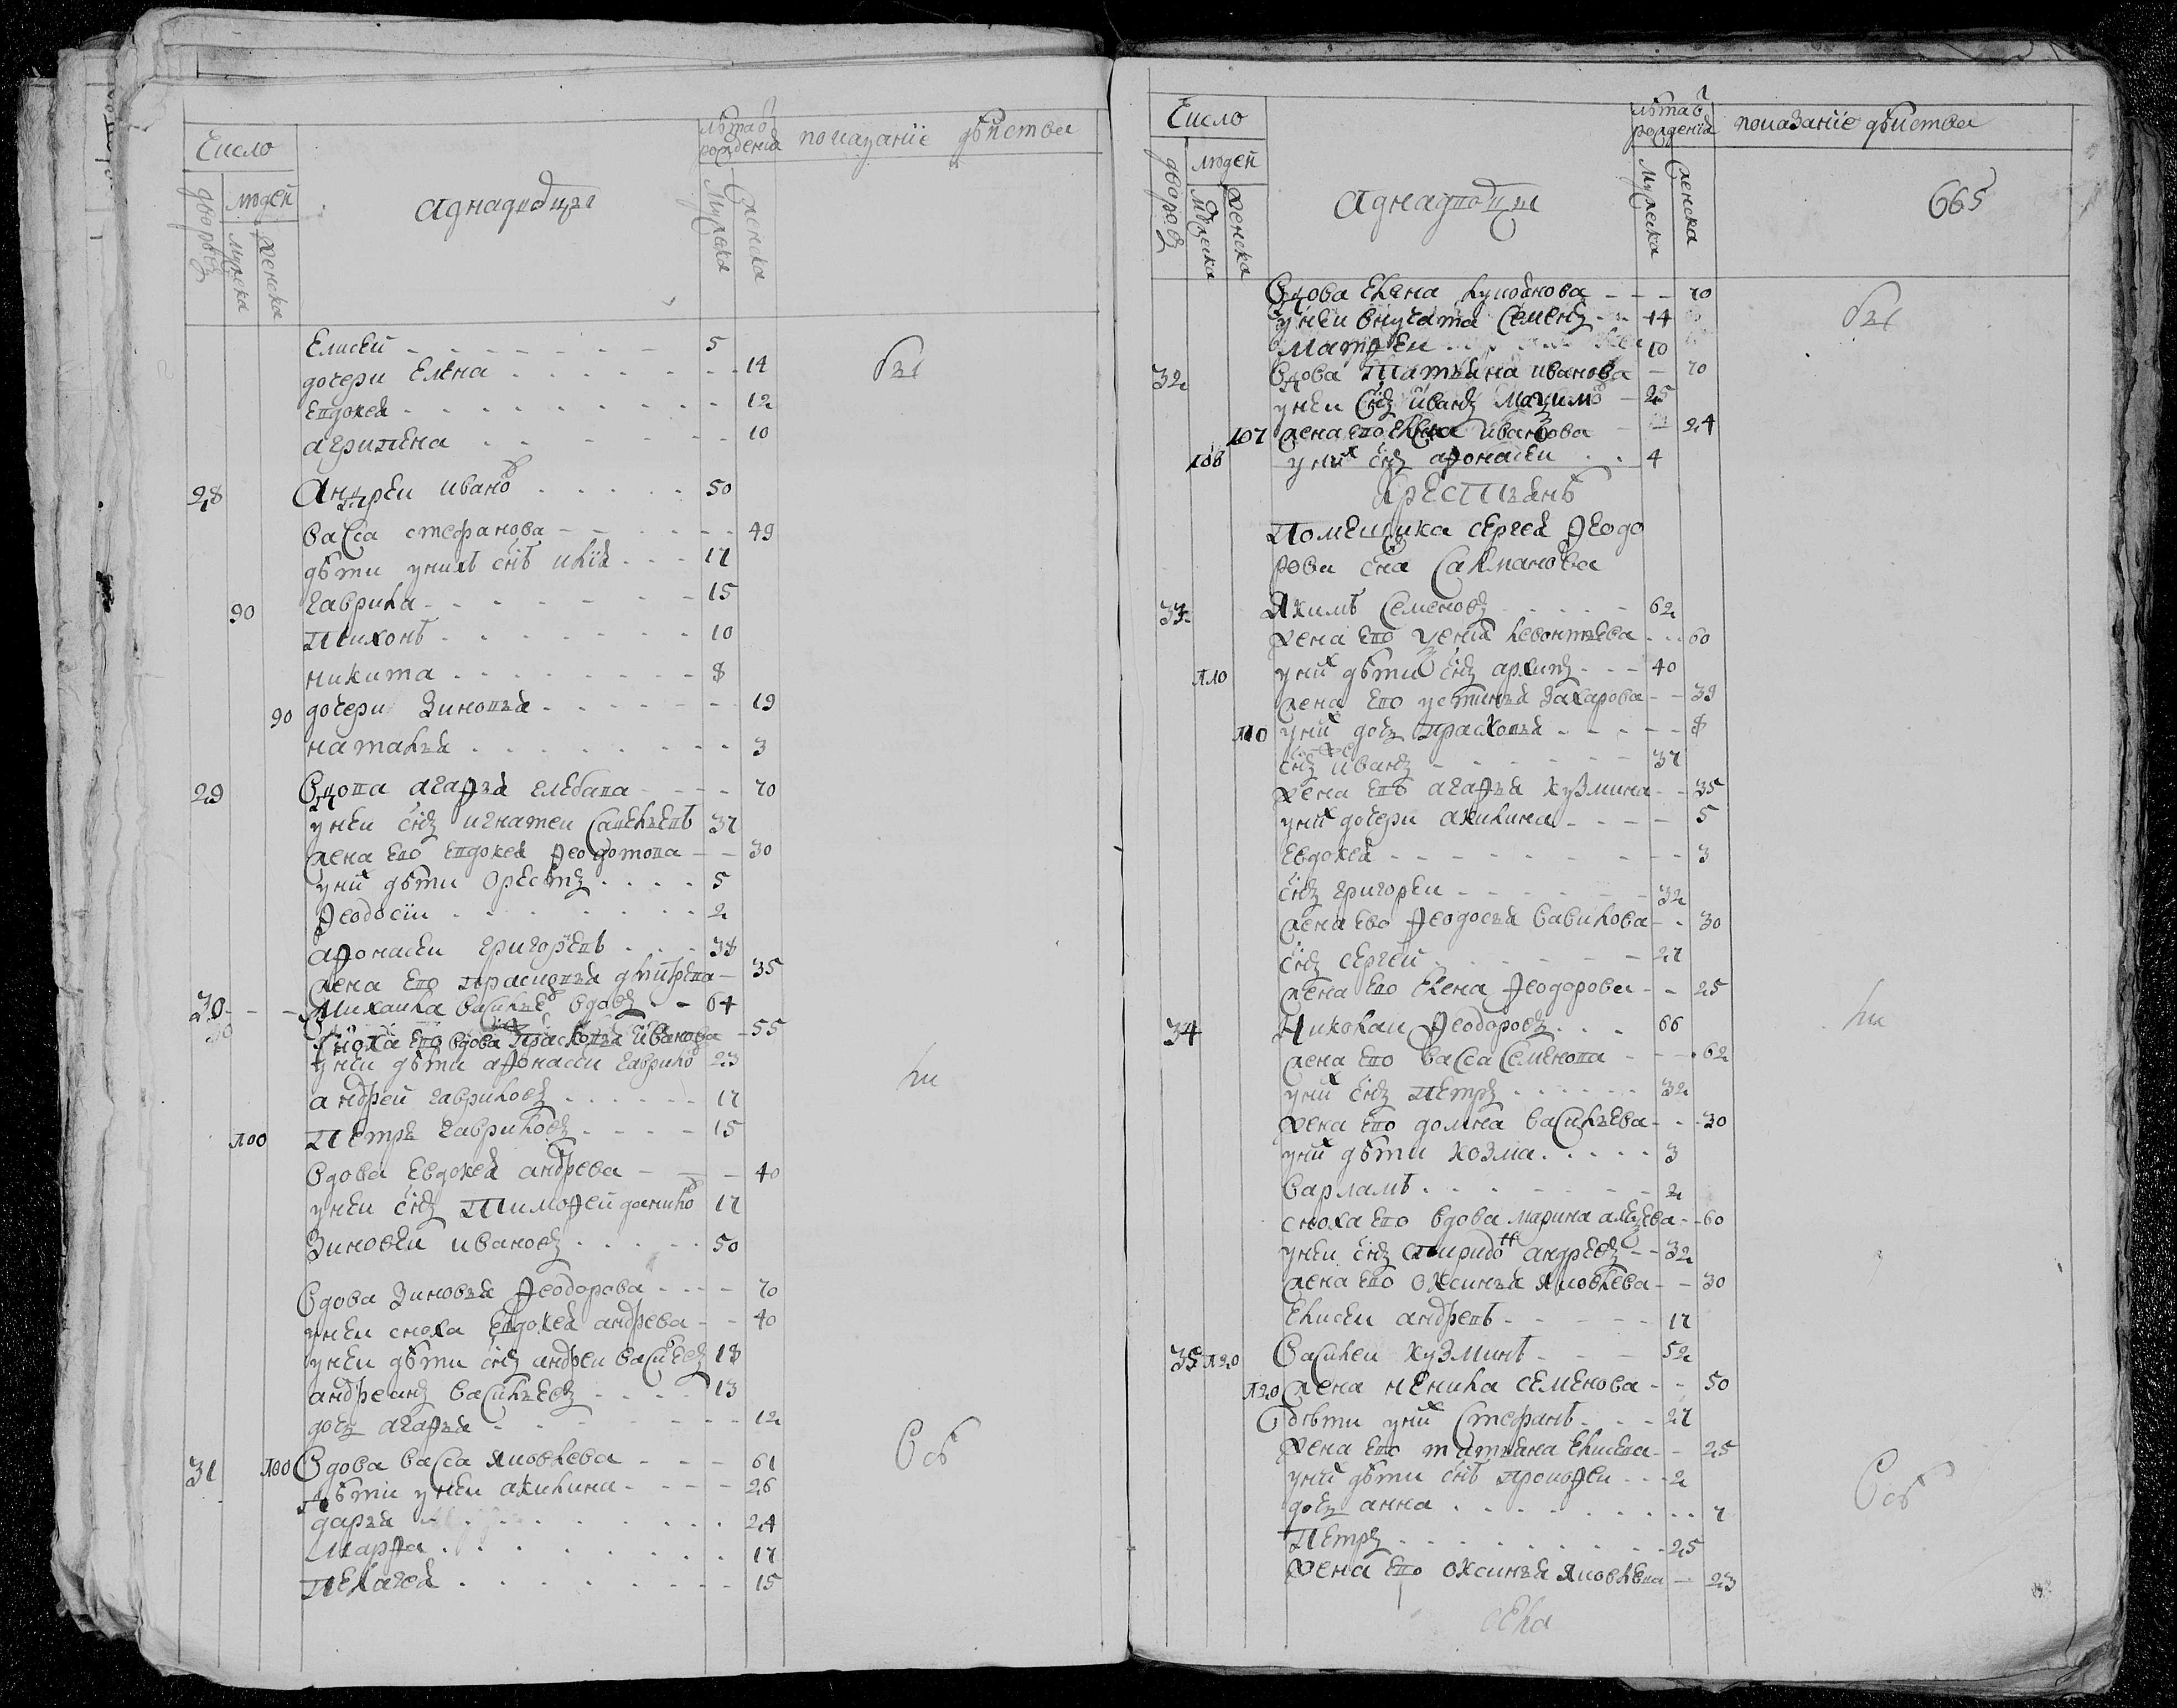 Число
дворовъ
людей
мужска
женска
аднадворцы
лѣта от
рождения
мужска
женска
показание действа
Елисей - - - 5
дочери Елена . . . 14
Евдокея - - - 12
агрипена - - - 10
бы
28 Андреи иванов . . . 50
васса стефанова - - - 49
дѣти у нихъ снъ илiя . . . 17
90 гаврила - - - 15
тихонъ - - - 10
никита - - - 8
90 дочери зиновья - - - 19
наталья - - - 3
29 вдова агафья глебава - - - 70
у неи снъ игнатеи савельевъ 37
жена ево евдокея федотова - - 30
у них дѣти орестъ . . . . 5
феодосiи - - - 2
афонасеи григорьевъ - - - 38
жена ево прасковья дмитрева - 35
30 - - - михаила василев вдовъ - - 64
сноха ево вдова прасковья иванова - 55
у неи дѣти афонасеи гаврилов 23
андрей гавриловъ . . . 17
ли
100 петръ гавриловъ - - - 15
вдова евдокея андрева - - - 40
у неи снъ тимофеи данилов 17
зиновеи ивановъ - - - 50
вдова зиновья феодорова - - - 70
у неи сноха евдокея андрева - - 40
у неи дѣти снъ андреи васильевъ 18
андреянъ васильевъ - - - 13
дочь агафья - - - 12
31 100 вдова васса яковлева - - - 61
дѣти у неи акилина - - - 26
дарья - - - 24
марфа . . . 17
пелагея . . . 15
Соб
Число
дворовъ
людей
мужска
женска
аднадворцы
лѣта от
рождения
мужска
женска
показание действа
665
вдова елена - - - 70
у неи внучата семенъ - - 14
матфеи 10
бы
32 вдова татьяна иванова - 70
у неи снъ иванъ - 25
107 жена ево елена иванова - - 24
108 у них снъ афонасеи . . 4
крестьянъ
помещика сергея феодо
рова сна салманова
33 якимъ семеновъ - - - 62
жена ево левонтьева . . . 60
110 у них дѣти снъ архипъ - - - 40
жена ево устинья захарова - - 39
110 у них дочь прасковья - - - 8
снъ иванъ - - - 37
жена ево агафья кузмина - - 35
у них дочери акилина - - - 5
евдокея - - - 3
снъ григореи - - - 32
жена ево феодосья вавилова - - 30
снъ сергеи - - - 27
жена ево елена феодорова - - 25
34 николаи феодоровъ . . . 66
ли
жена ево васса семенова - - - 62
у них снъ петръ . . . 32
жена ево домна васильева - - - 30
у них дѣти козма . . . . 3
варламъ . . . 2
сноха ево вдова марина - - 60
у неи снъ спиридон андреевъ - - 32
жена ево оксинья яковлева - - 30
елисеи андревъ - - - 17
35 120 василеи кузминъ - - - 52
120 жена ненила семенова - - 50
дѣти у них стефанъ - - - 27
жена ево татьяна елисева - - 25
у них дѣти снъ прокофеи - - - 2
дочь анна . . . 7
петръ - - - 25
жена ево оксинья яковлева - 23
Соб
села